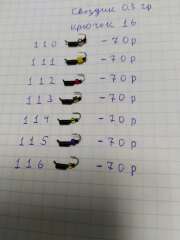 гвоздик 0.3 гр
крючок 16
110 -70 р
111 -70 р
112 -70 р
113 -70 р
114 -70 р
115 -70 р
116 -70 р